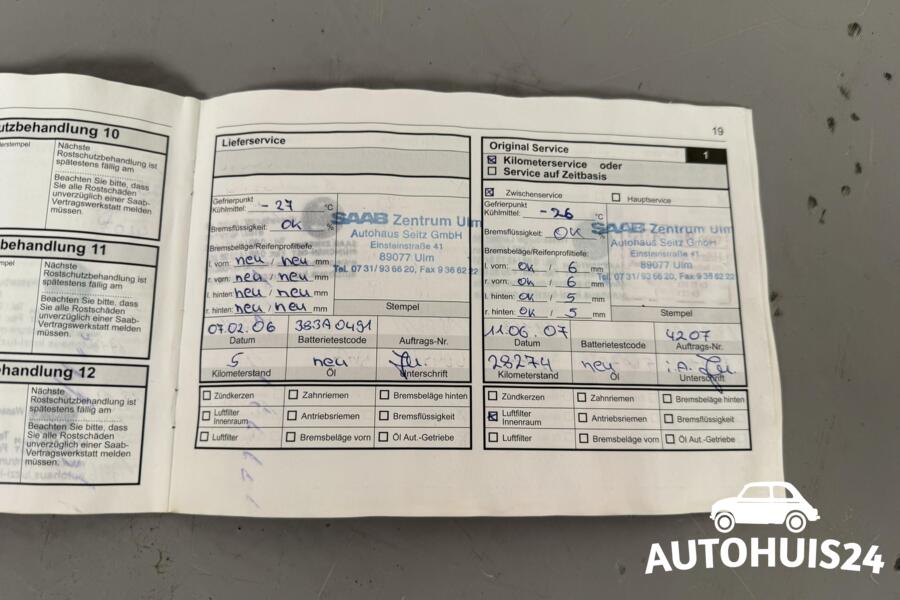 utzbehandlung 10
Nächste
Rostschutzbehandlung ist
spätestens fällig am
Beachten Sie bitte, dass
Sie alle Rostschäden
unverzüglich einer Saab-
Vertragswerkstatt melden
müssen.
behandlung 11
Nächste
Rostschutzbehandlung ist
spätestens fällig am
Beachten Sie bitte, dass
Sie alle Rostschäden
unverzüglich einer Saab-
Vertragswerkstatt melden
müssen.
ehandlung 12
Nächste
Rostschutzbehandlung ist
spätestens fällig am
Beachten Sie bitte, dass
Sie alle Rostschäden
unverzüglich einer Saab-
Vertragswerkstatt melden
müssen.
Lieferservice
Gefrierpunkt
Kühlmittel: -27 °C
Bremsflüssigkeit: OK %
Bremsbeläge/Reifenprofiltiefe:
l. vorn: neu / neu mm
r. vorn: neu / neu mm
l. hinten: neu / neu mm
r. hinten: neu / neu mm
SAAB Zentrum Ulm
Autohaus Seitz GmbH
Einsteinstraße 41
89077 Ulm
Tel. 07 31/93 66 20, Fax 9 36 62 22
Stempel
07.02.06 383A0491
Datum Batterietestcode Auftrags-Nr.
5 neu
Kilometerstand Öl Unterschrift
Zündkerzen Zahnriemen Bremsbeläge hinten
Luftfilter Innenraum Antriebsriemen Bremsflüssigkeit
Luftfilter Bremsbeläge vorn Öl Aut.-Getriebe
19
Original Service 1
Kilometerservice oder
Service auf Zeitbasis
Zwischenservice Hauptservice
Gefrierpunkt
Kühlmittel: -26 °C
Bremsflüssigkeit: OK %
Bremsbeläge/Reifenprofiltiefe:
l. vorn: ok / 6 mm
r. vorn: ok / 6 mm
l. hinten: ok / 5 mm
r. hinten: ok / 5 mm
SAAB Zentrum Ulm
Autohaus Seitz GmbH
Einsteinstraße 41
89077 Ulm
Tel. 07 31/93 66 20, Fax 9 36 62 22
Stempel
11.06.07 4207
Datum Batterietestcode Auftrags-Nr.
28274 neu i.A.
Kilometerstand Öl Unterschrift
Zündkerzen Zahnriemen Bremsbeläge hinten
Luftfilter Innenraum Antriebsriemen Bremsflüssigkeit
Luftfilter Bremsbeläge vorn Öl Aut.-Getriebe
AUTOHUIS24